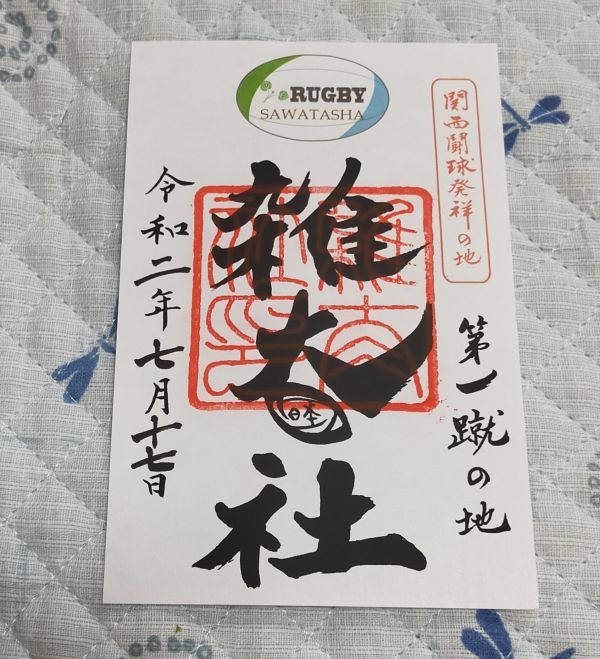 RUGBY
SAWATASHA
関西闘球発祥の地
第一蹴の地
雑太社
日本
令和二年七月十七日